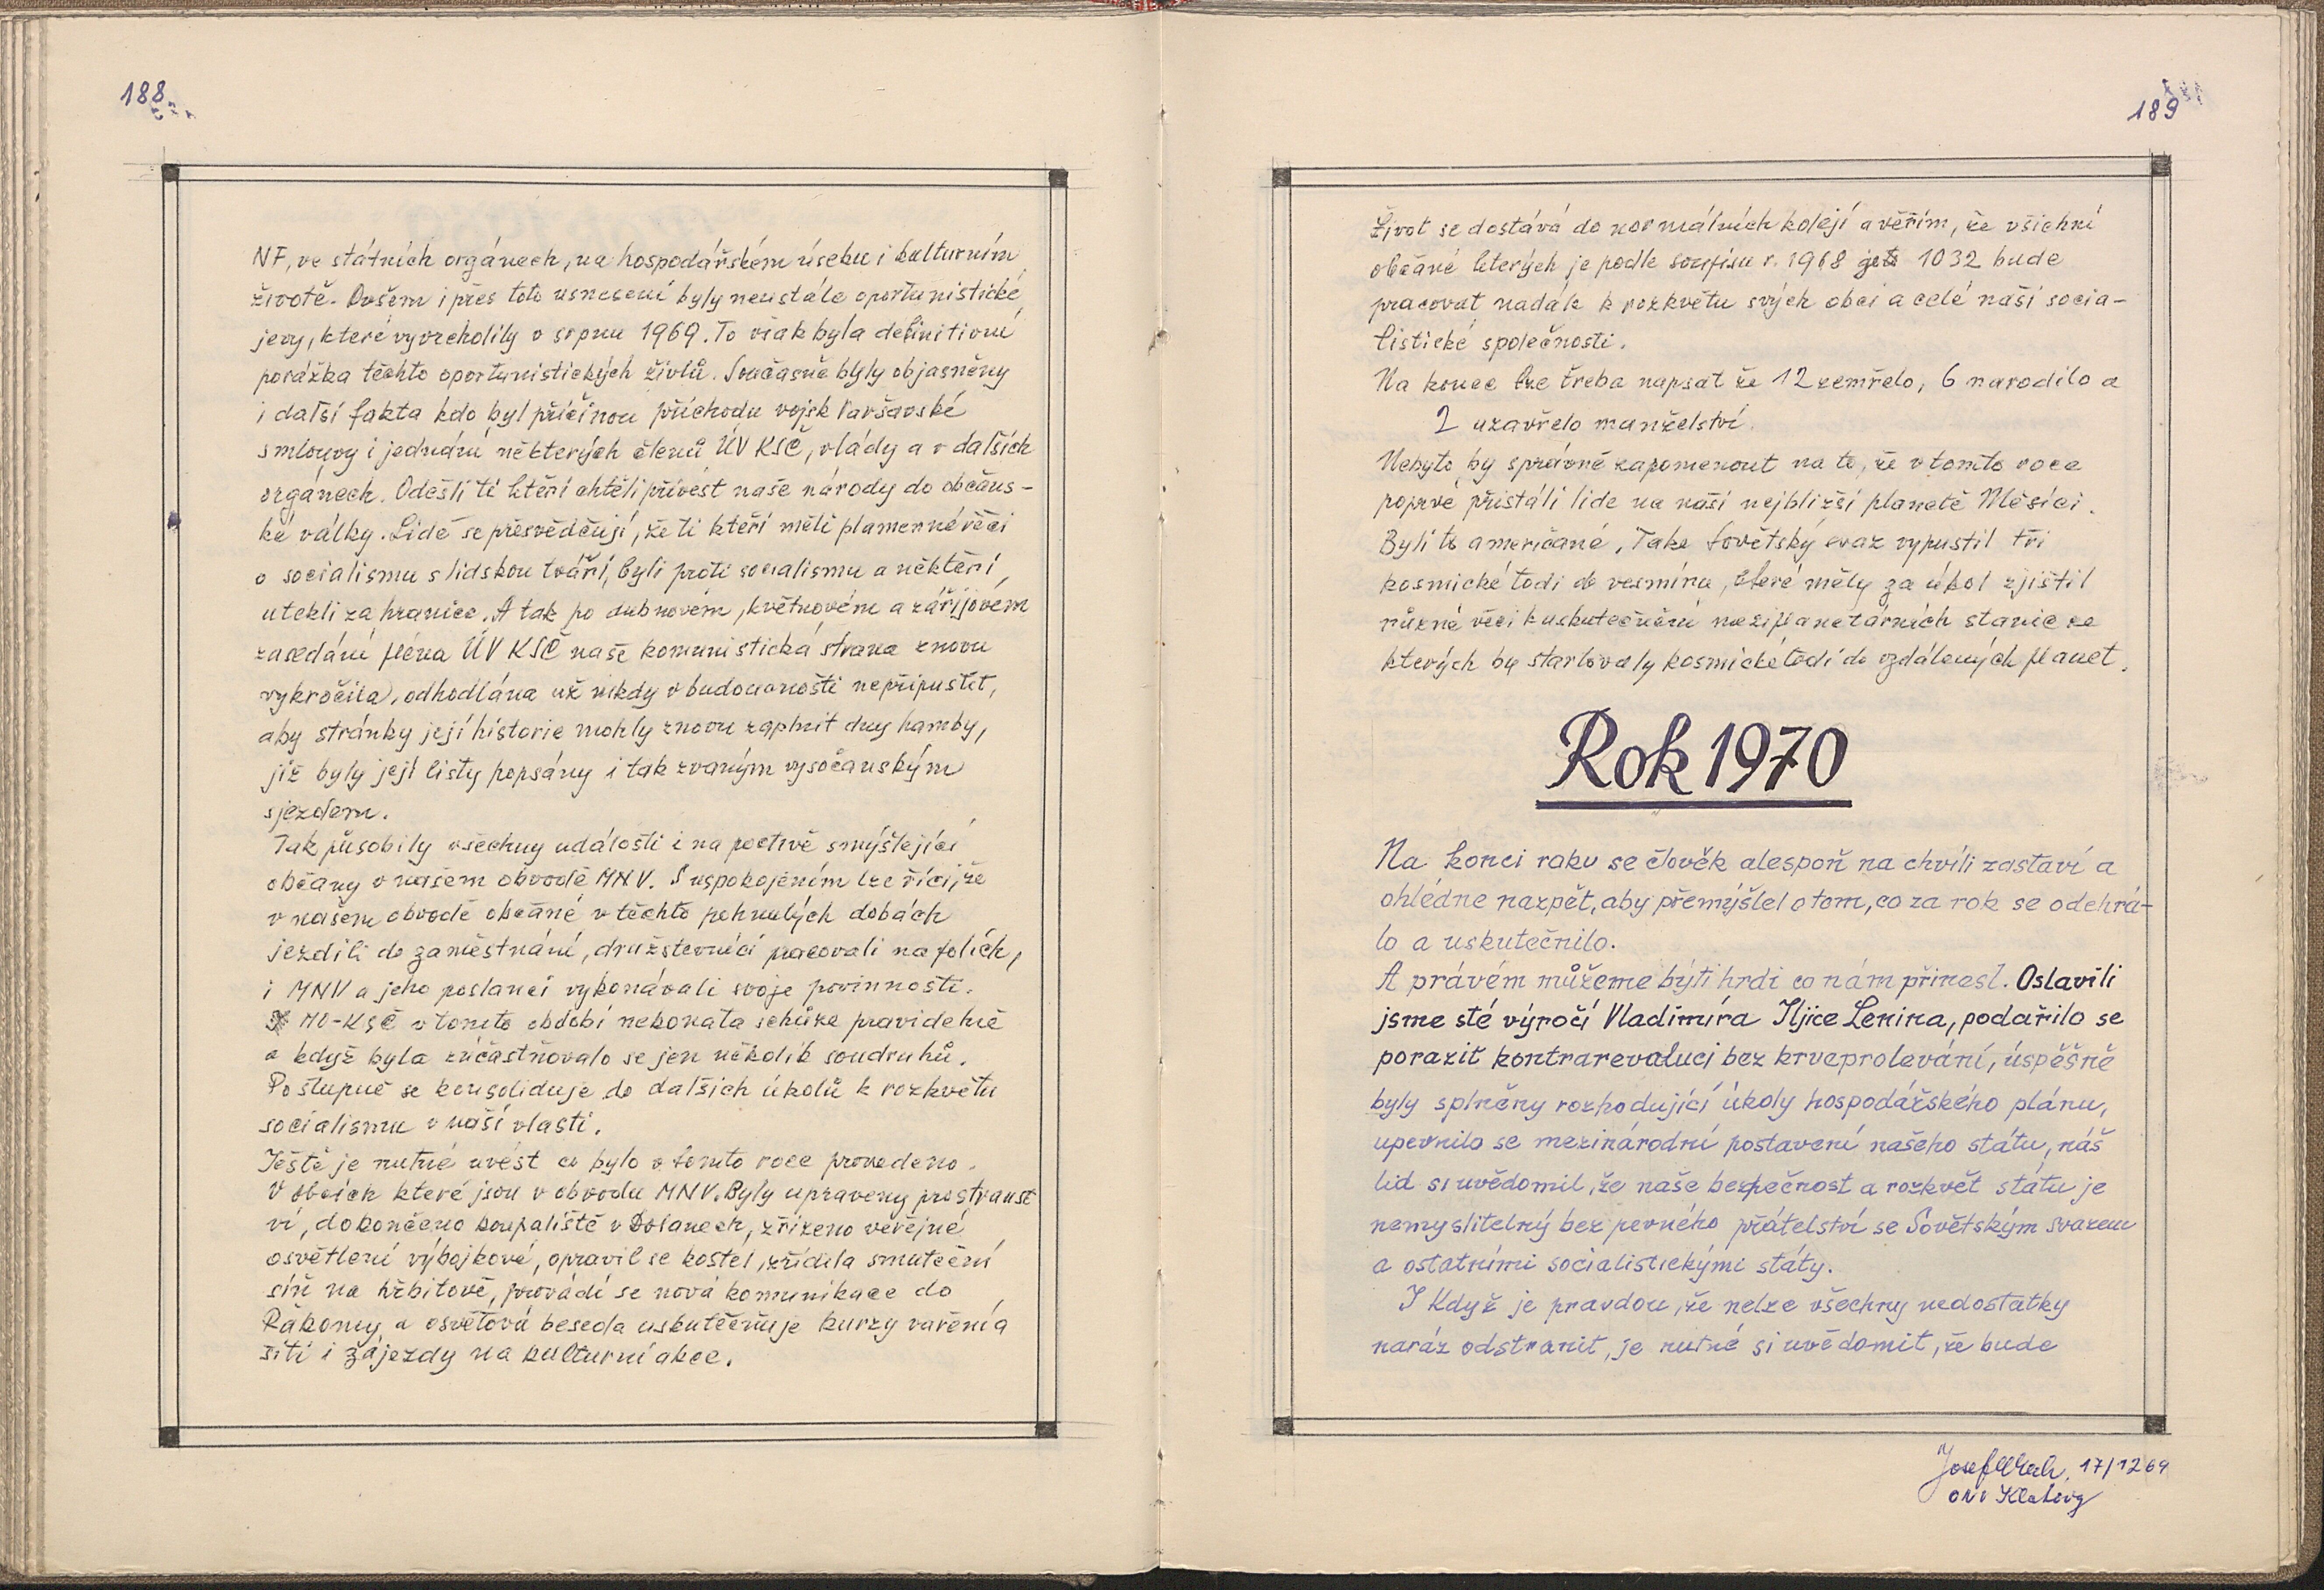 188
NF, ve státních orgánech, na hospodářském úseku i kulturním
životě. Ovšem i přes toto usnesení byly neustále oportunistické
jevy, které vyvrcholily v srpnu 1969. To však byla definitivní
porážka těchto oportunistických živlů. Současně byly objasněny
i další fakta kdo byl příčinou příchodu vojsk Varšavské
smlouvy i jednání některých členů ÚV KSČ, vlády a v dalších
orgánech. Odešli ti kteří chtěli přivést naše národy do občans-
ké války. Lidé se přesvědčují, že ti kteří měli plamenné řeči
o socialismu s lidskou tváří, byli proti socialismu a někteří
utekli za hranice. A tak po dubnovém, květnovém a zářijovém
zasedání pléna ÚV KSČ naše komunistická strana znovu
vykročila, odhodlána už nikdy v budoucnosti nepřipustit,
aby stránky její historie mohly znovu zaplnit dny hamby,
jíž byly její listy popsány i tak zvaným vysočanským
sjezdem.
Tak působily všechny události i na poctivě smýšlející
občany v našem obvodě MNV. S uspokojením lze říci, že
v našem obvodě občané v těchto pohnutých dobách
jezdili do zaměstnání, družstevníci pracovali na polích,
i MNV a jeho poslanci vykonávali svoje povinnosti.
MO-KSČ v tomto období nekonala schůze pravidelně
a když byla zúčastňovalo se jen několik soudruhů.
Postupně se konsoliduje do dalších úkolů k rozkvětu
socialismu v naší vlasti.
Ještě je nutné uvést co bylo v tomto roce provedeno.
V obcích které jsou v obvodu MNV. Byly upraveny prostranst
ví, dokončeno koupaliště v Dolanech, zřízeno veřejné
osvětlení výbojkové, opravil se kostel, zřídila smuteční
síň na hřbitově, provádí se nová komunikace do
Rakomy a osvětová beseda uskutečňuje kurzy vaření a
šití i zájezdy na kulturní akce.
189
Život se dostává do normálních kolejí a věřím, že všichni
občané kterých je podle soupisu r. 1968 1032 bude
pracovat nadále k rozkvětu svých obcí a celé naší socia-
listické společnosti.
Na konec lze třeba napsat že 12 zemřelo, 6 narodilo a
2 uzavřelo manželství.
Nebylo by správné zapomenout na to, že v tomto roce
poprvé přistáli lidé na naší nejbližší planetě Měsíci.
Byli to američané. Také Sovětský svaz vypustil tři
kosmické lodi do vesmíru, které měly za úkol zjistil
různé věci k uskutečnění meziplanetárních stanic ze
kterých by startovaly kosmické lodi do vzdálených planet.
Rok 1970
Na konci roku se člověk alespoň na chvíli zastaví a
ohlédne nazpět, aby přemýšlel o tom, co za rok se odehrá-
lo a uskutečnilo.
A právem můžeme býti hrdi co nám přinesl. Oslavili
jsme sté výročí Vladimíra Iljice Lenina, podařilo se
porazit kontrarevoluci bez krveprolevání, úspěšně
byly splněny rozhodující úkoly hospodářského plánu,
upevnilo se mezinárodní postavení našeho státu, náš
lid si uvědomil, že naše bezpečnost a rozkvět státu je
nemyslitelný bez pevného přátelství se Sovětským svazem
a ostatními socialistickými státy.
I když je pravdou, že nelze všechny nedostatky
naráz odstranit, je nutné si uvědomit, že bude
Josef 17/12 69
ONV Klatovy